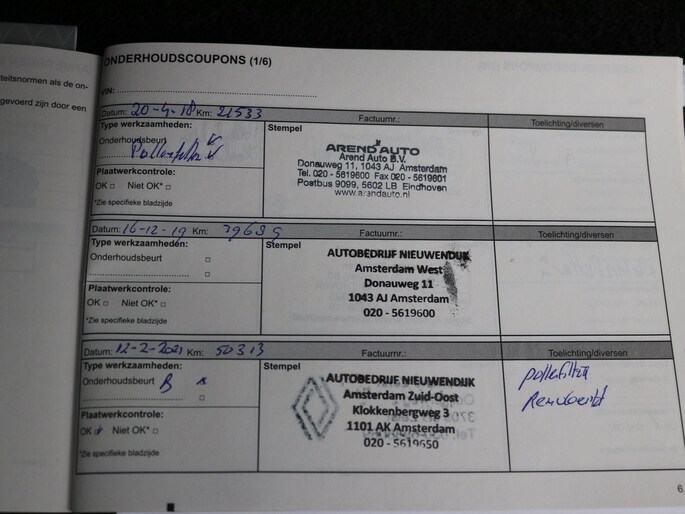 teitsnormen als de on-
gevoerd zijn door een
ONDERHOUDSCOUPONS (1/6)
VIN:
Datum: 20-4-18 Km: 21533 Factuurnr.: Toelichting/diversen
Type werkzaamheden:
Onderhoudsbeurt
Pollenfilter
Plaatwerkcontrole:
OK □ Niet OK* □
*Zie specifieke bladzijde
Stempel
AREND AUTO
Arend Auto B.V.
Donauweg 11, 1043 AJ Amsterdam
Tel. 020 - 5619600 Fax 020 - 5619601
Postbus 9099, 5602 LB Eindhoven
www.arendauto.nl
Datum: 16-12-19 Km: 39639 Factuurnr.: Toelichting/diversen
Type werkzaamheden:
Onderhoudsbeurt □
□
Plaatwerkcontrole:
OK □ Niet OK* □
*Zie specifieke bladzijde
Stempel
AUTOBEDRIJF NIEUWENDIJK
Amsterdam West
Donauweg 11
1043 AJ Amsterdam
020 - 5619600
Datum: 12-2-2021 Km: 50313 Factuurnr.: Toelichting/diversen
Type werkzaamheden:
Onderhoudsbeurt B
□
Plaatwerkcontrole:
OK Niet OK* □
*Zie specifieke bladzijde
Stempel
AUTOBEDRIJF NIEUWENDIJK
Amsterdam Zuid-Oost
Klokkenbergweg 3
1101 AK Amsterdam
020 - 5619650
pollenfilter
Remvloeistof
6.